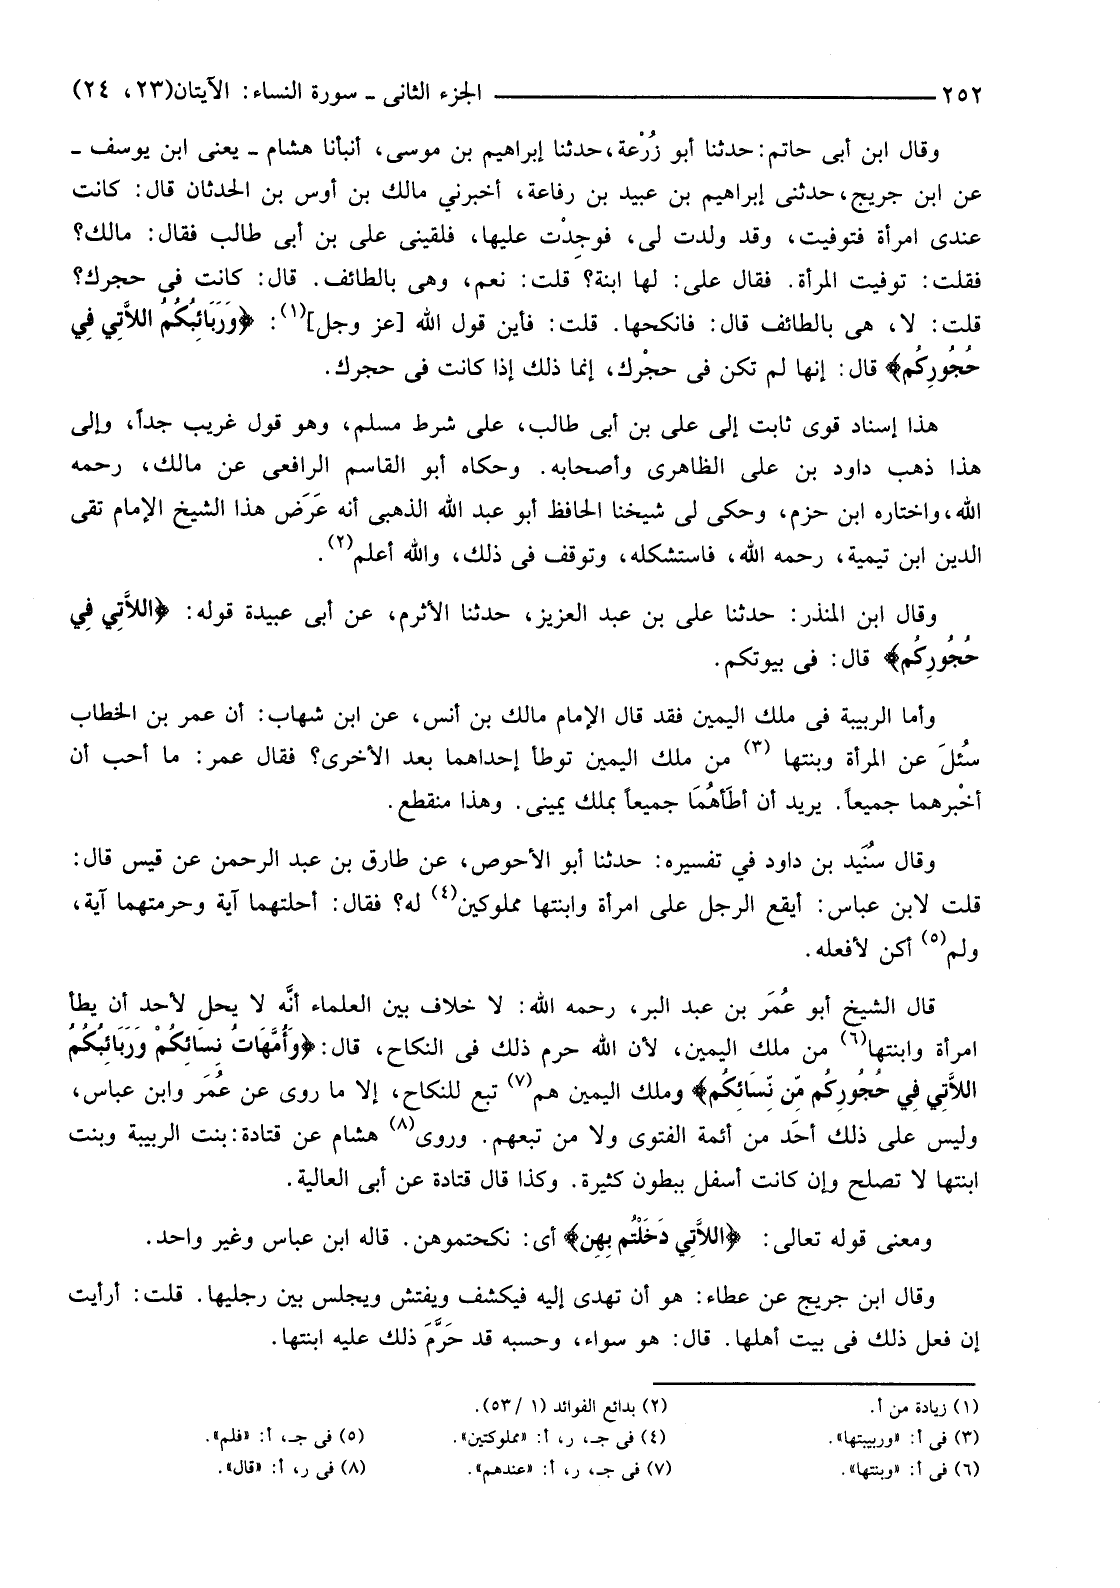 ٢٥٢ ــــــــــــــــــــــــــــــــ الجزء الثانى ـ سورة النساء: الآيتان(٢٣، ٢٤)
وقال ابن أبى حاتم: حدثنا أبو زُرْعة،حدثنا إبراهيم بن موسى، أنبأنا هشام ـ يعنى ابن يوسف ـ
عن ابن جريج،حدثنى إبراهيم بن عبيد بن رفاعة، أخبرني مالك بن أوس بن الحدثان قال: كانت
عندى امرأة فتوفيت، وقد ولدت لى، فوجِدْت عليها، فلقينى على بن أبى طالب فقال: مالك؟
فقلت: توفيت المرأة. فقال على: لها ابنة؟ قلت: نعم، وهى بالطائف. قال: كانت فى حجرك؟
قلت: لا، هى بالطائف قال: فانكحها. قلت: فأين قول الله [عز وجل](١): ﴿وَرَبَائِبُكُمُ اللاَّتِي فِي
حُجُورِكُم﴾ قال: إنها لم تكن فى حجْرك، إنما ذلك إذا كانت فى حجرك.
هذا إسناد قوى ثابت إلى على بن أبى طالب، على شرط مسلم، وهو قول غريب جداً، وإلى
هذا ذهب داود بن على الظاهرى وأصحابه. وحكاه أبو القاسم الرافعى عن مالك، رحمه
الله،واختاره ابن حزم، وحكى لى شيخنا الحافظ أبو عبد الله الذهبى أنه عَرَض هذا الشيخ الإمام تقى
الدين ابن تيمية، رحمه الله، فاستشكله، وتوقف فى ذلك، والله أعلم(٢).
وقال ابن المنذر: حدثنا على بن عبد العزيز، حدثنا الأثرم، عن أبى عبيدة قوله: ﴿اللاَّتِي فِي
حُجُورِكُم﴾ قال: فى بيوتكم.
وأما الربيبة فى ملك اليمين فقد قال الإمام مالك بن أنس، عن ابن شهاب: أن عمر بن الخطاب
سُئلَ عن المرأة وبنتها (٣) من ملك اليمين توطأ إحداهما بعد الأخرى؟ فقال عمر: ما أحب أن
أخْبرهما جميعاً. يريد أن أطَأهُمَا جميعاً بملك يمينى. وهذا منقطع.
وقال سُنَيد بن داود في تفسيره: حدثنا أبو الأحوص، عن طارق بن عبد الرحمن عن قيس قال:
قلت لابن عباس: أيقع الرجل على امرأة وابنتها مملوكين(٤) له؟ فقال: أحلتهما آية وحرمتهما آية،
ولم(٥) أكن لأفعله.
قال الشيخ أبو عُمَر بن عبد البر، رحمه الله: لا خلاف بين العلماء أنَّه لا يحل لأحد أن يطأ
امرأة وابنتها(٦) من ملك اليمين، لأن الله حرم ذلك فى النكاح، قال:﴿وَأُمَّهَاتُ نِسَائِكُمْ وَرَبَائِبُكُمُ
اللاَّتِي فِي حُجُورِكُم مِّن نِّسَائِكُم﴾ وملك اليمين هم(٧) تبع للنكاح، إلا ما روى عن عُمَر وابن عباس،
وليس على ذلك أحَد من أئمة الفتوى ولا من تبعهم. وروى(٨) هشام عن قتادة:بنت الربيبة وبنت
ابنتها لا تصلح وإن كانت أسفل ببطون كثيرة. وكذا قال قتادة عن أبى العالية.
ومعنى قوله تعالى: ﴿اللاَّتِي دَخَلْتُم بِهِن﴾ أى: نكحتموهن. قاله ابن عباس وغير واحد.
وقال ابن جريج عن عطاء: هو أن تهدى إليه فيكشف ويفتش ويجلس بين رجليها. قلت: أرأيت
إن فعل ذلك فى بيت أهلها. قال: هو سواء، وحسبه قد حَرَّمَ ذلك عليه ابنتها.
(١) زيادة من أ. (٢) بدائع الفوائد (١ /٥٣).
(٣) فى أ: «وربيبتها». (٤) فى جـ، ر، أ: «مملوكتين». (٥) فى جـ، أ: «فلم».
(٦) فى أ: «وبنتها». (٧) فى جـ، ر، أ: «عندهم». (٨) فى ر، أ: «قال».